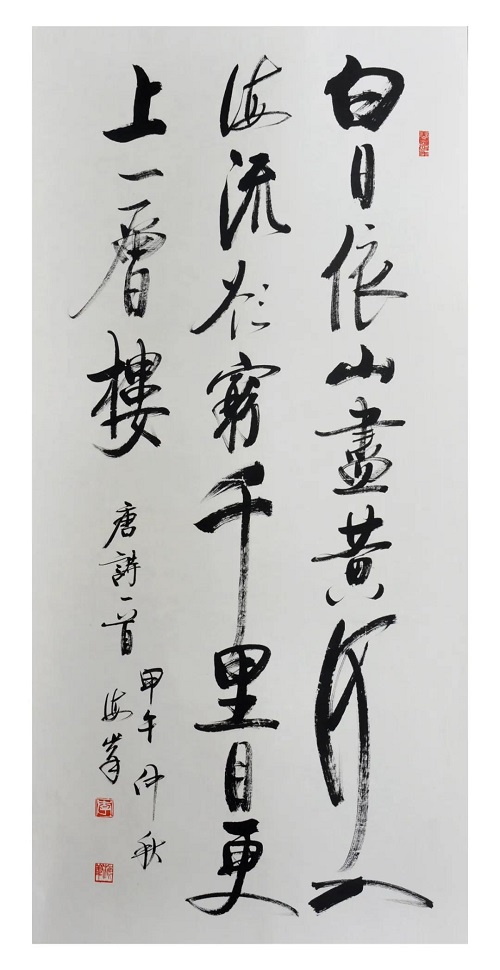 白日依山盡黃河入
海流欲窮千里目更
上一層樓
唐詩一首
甲午仲秋
海峯